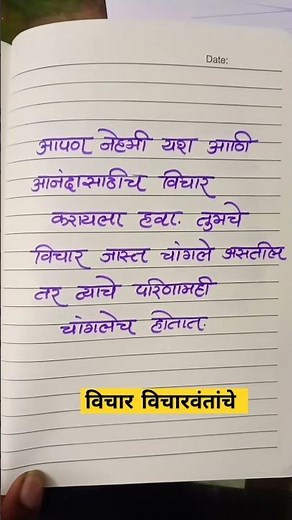 Date:
आपण नेहमी यश आणि
आनंदासाठीच विचार
करायला हवा. तुमचे
विचार जास्त चांगले असतील
तर त्याचे परिणामही
चांगलेच होतात.
विचार विचारवंतांचे